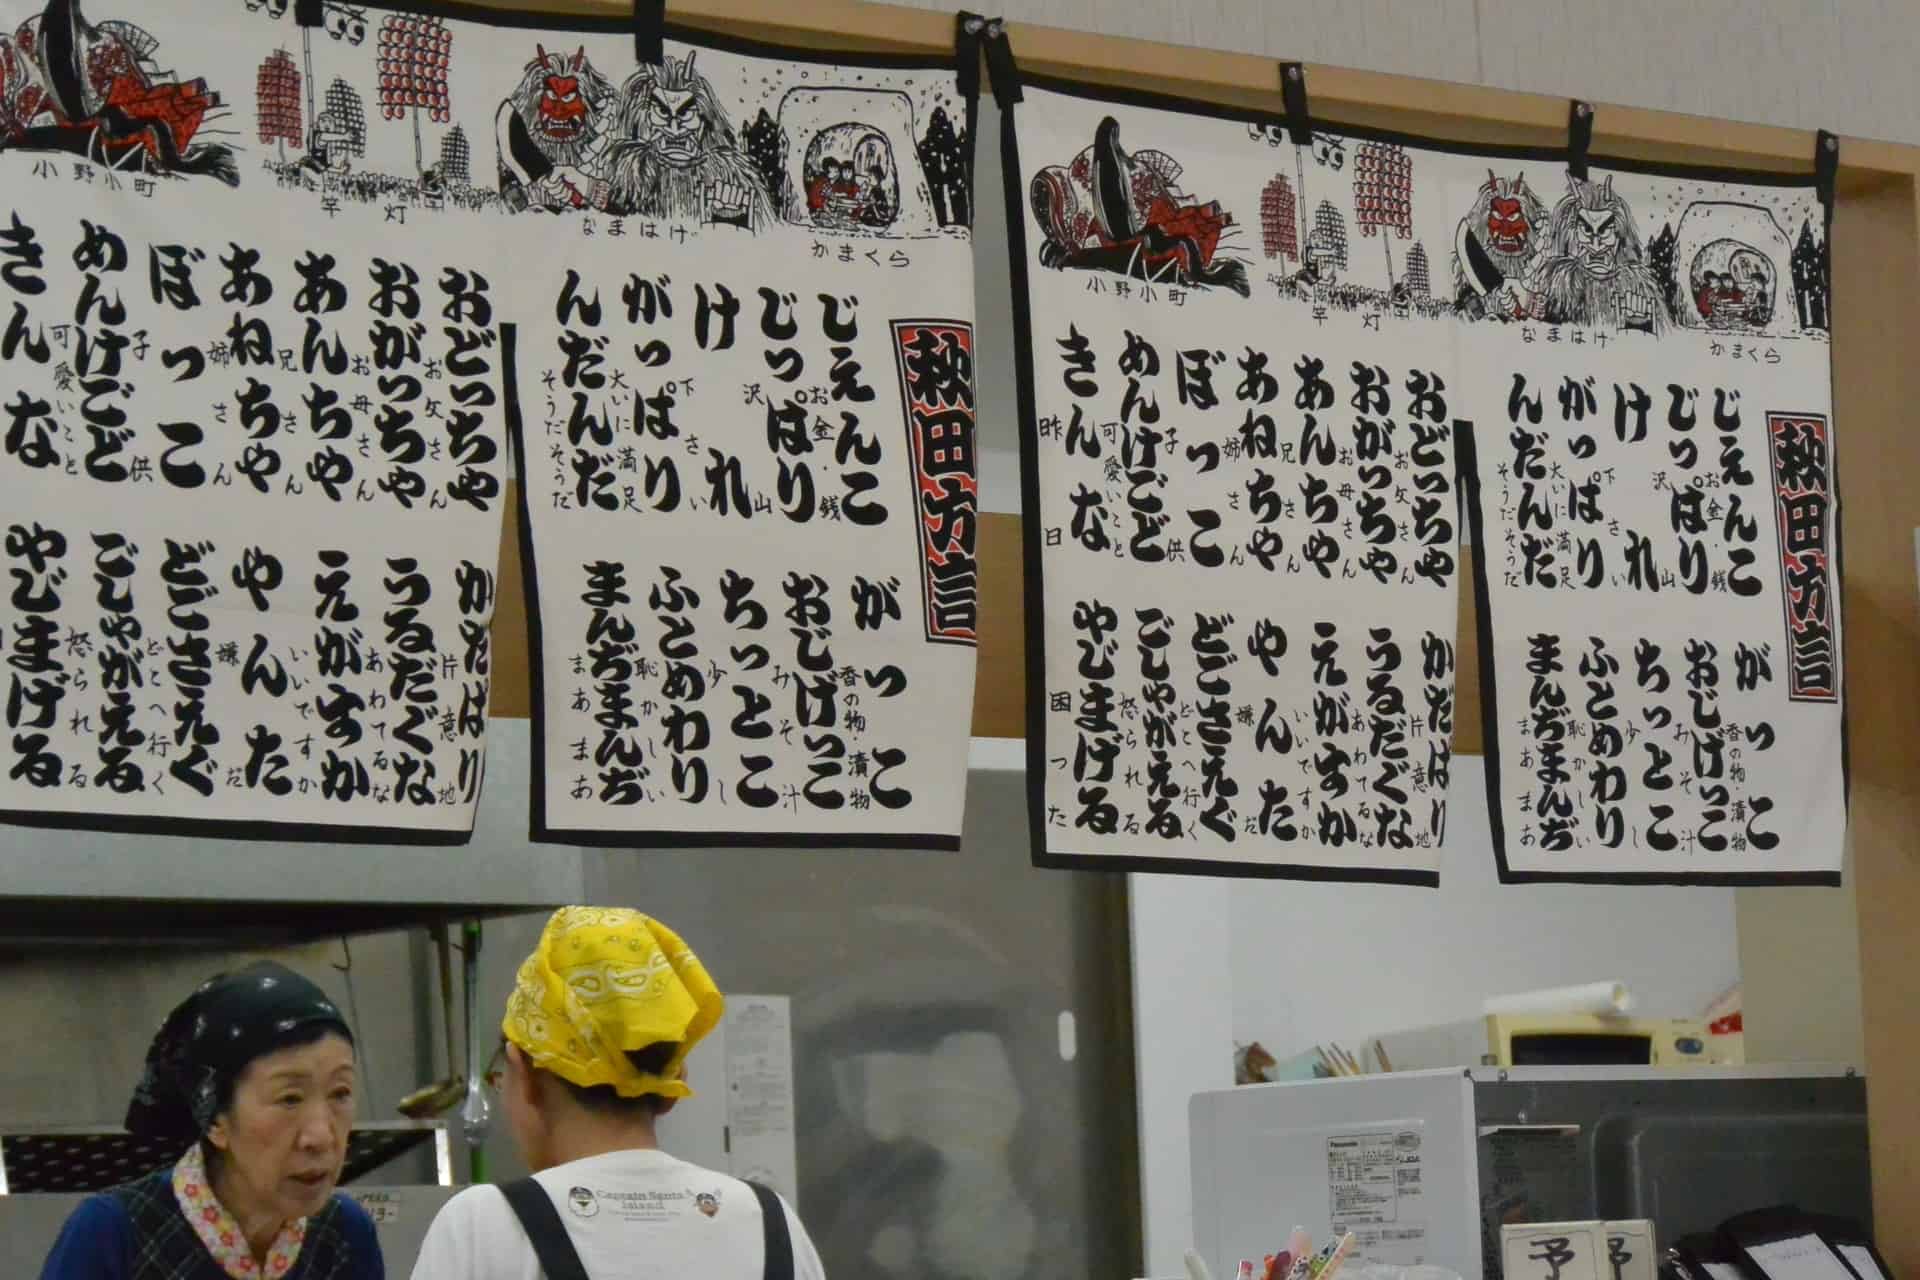 小野小町
竿灯
なまはげ
かまくら
秋田方言
じぇんこ
お金・銭
じっぱり
沢山
けれ
下さい
がっぱり
大いに満足
んだんだ
そうだそうだ
がっこ
香の物・漬物
おじげっこ
みそ汁
ちっとこ
少し
ふとめわり
恥かしい
まんぢまんぢ
まあまあ
おどっちゃ
お父さん
おがっちゃ
お母さん
あんちゃ
兄さん
あねちゃ
姉さん
ぼっこ
子供
めんけごど
可愛いこと
きんな
かだばり
片意地
うるだぐな
あわてるな
えがすか
いいですか
やんた
嫌だ
どごさえぐ
どこへ行く
ごしゃがえる
怒られる
やじまげる
小野小町
竿灯
なまはげ
かまくら
秋田方言
じぇんこ
お金・銭
じっぱり
沢山
けれ
下さい
がっぱり
大いに満足
んだんだ
そうだそうだ
がっこ
香の物・漬物
おじげっこ
みそ汁
ちっとこ
少し
ふとめわり
恥かしい
まんぢまんぢ
まあまあ
おどっちゃ
お父さん
おがっちゃ
お母さん
あんちゃ
兄さん
あねちゃ
姉さん
ぼっこ
子供
めんけごど
可愛いこと
きんな
昨日
かだばり
片意地
うるだぐな
あわてるな
えがすか
いいですか
やんた
嫌だ
どごさえぐ
どこへ行く
ごしゃがえる
怒られる
やじまげる
困った
Captain Santa
Island
Panasonic
予
予